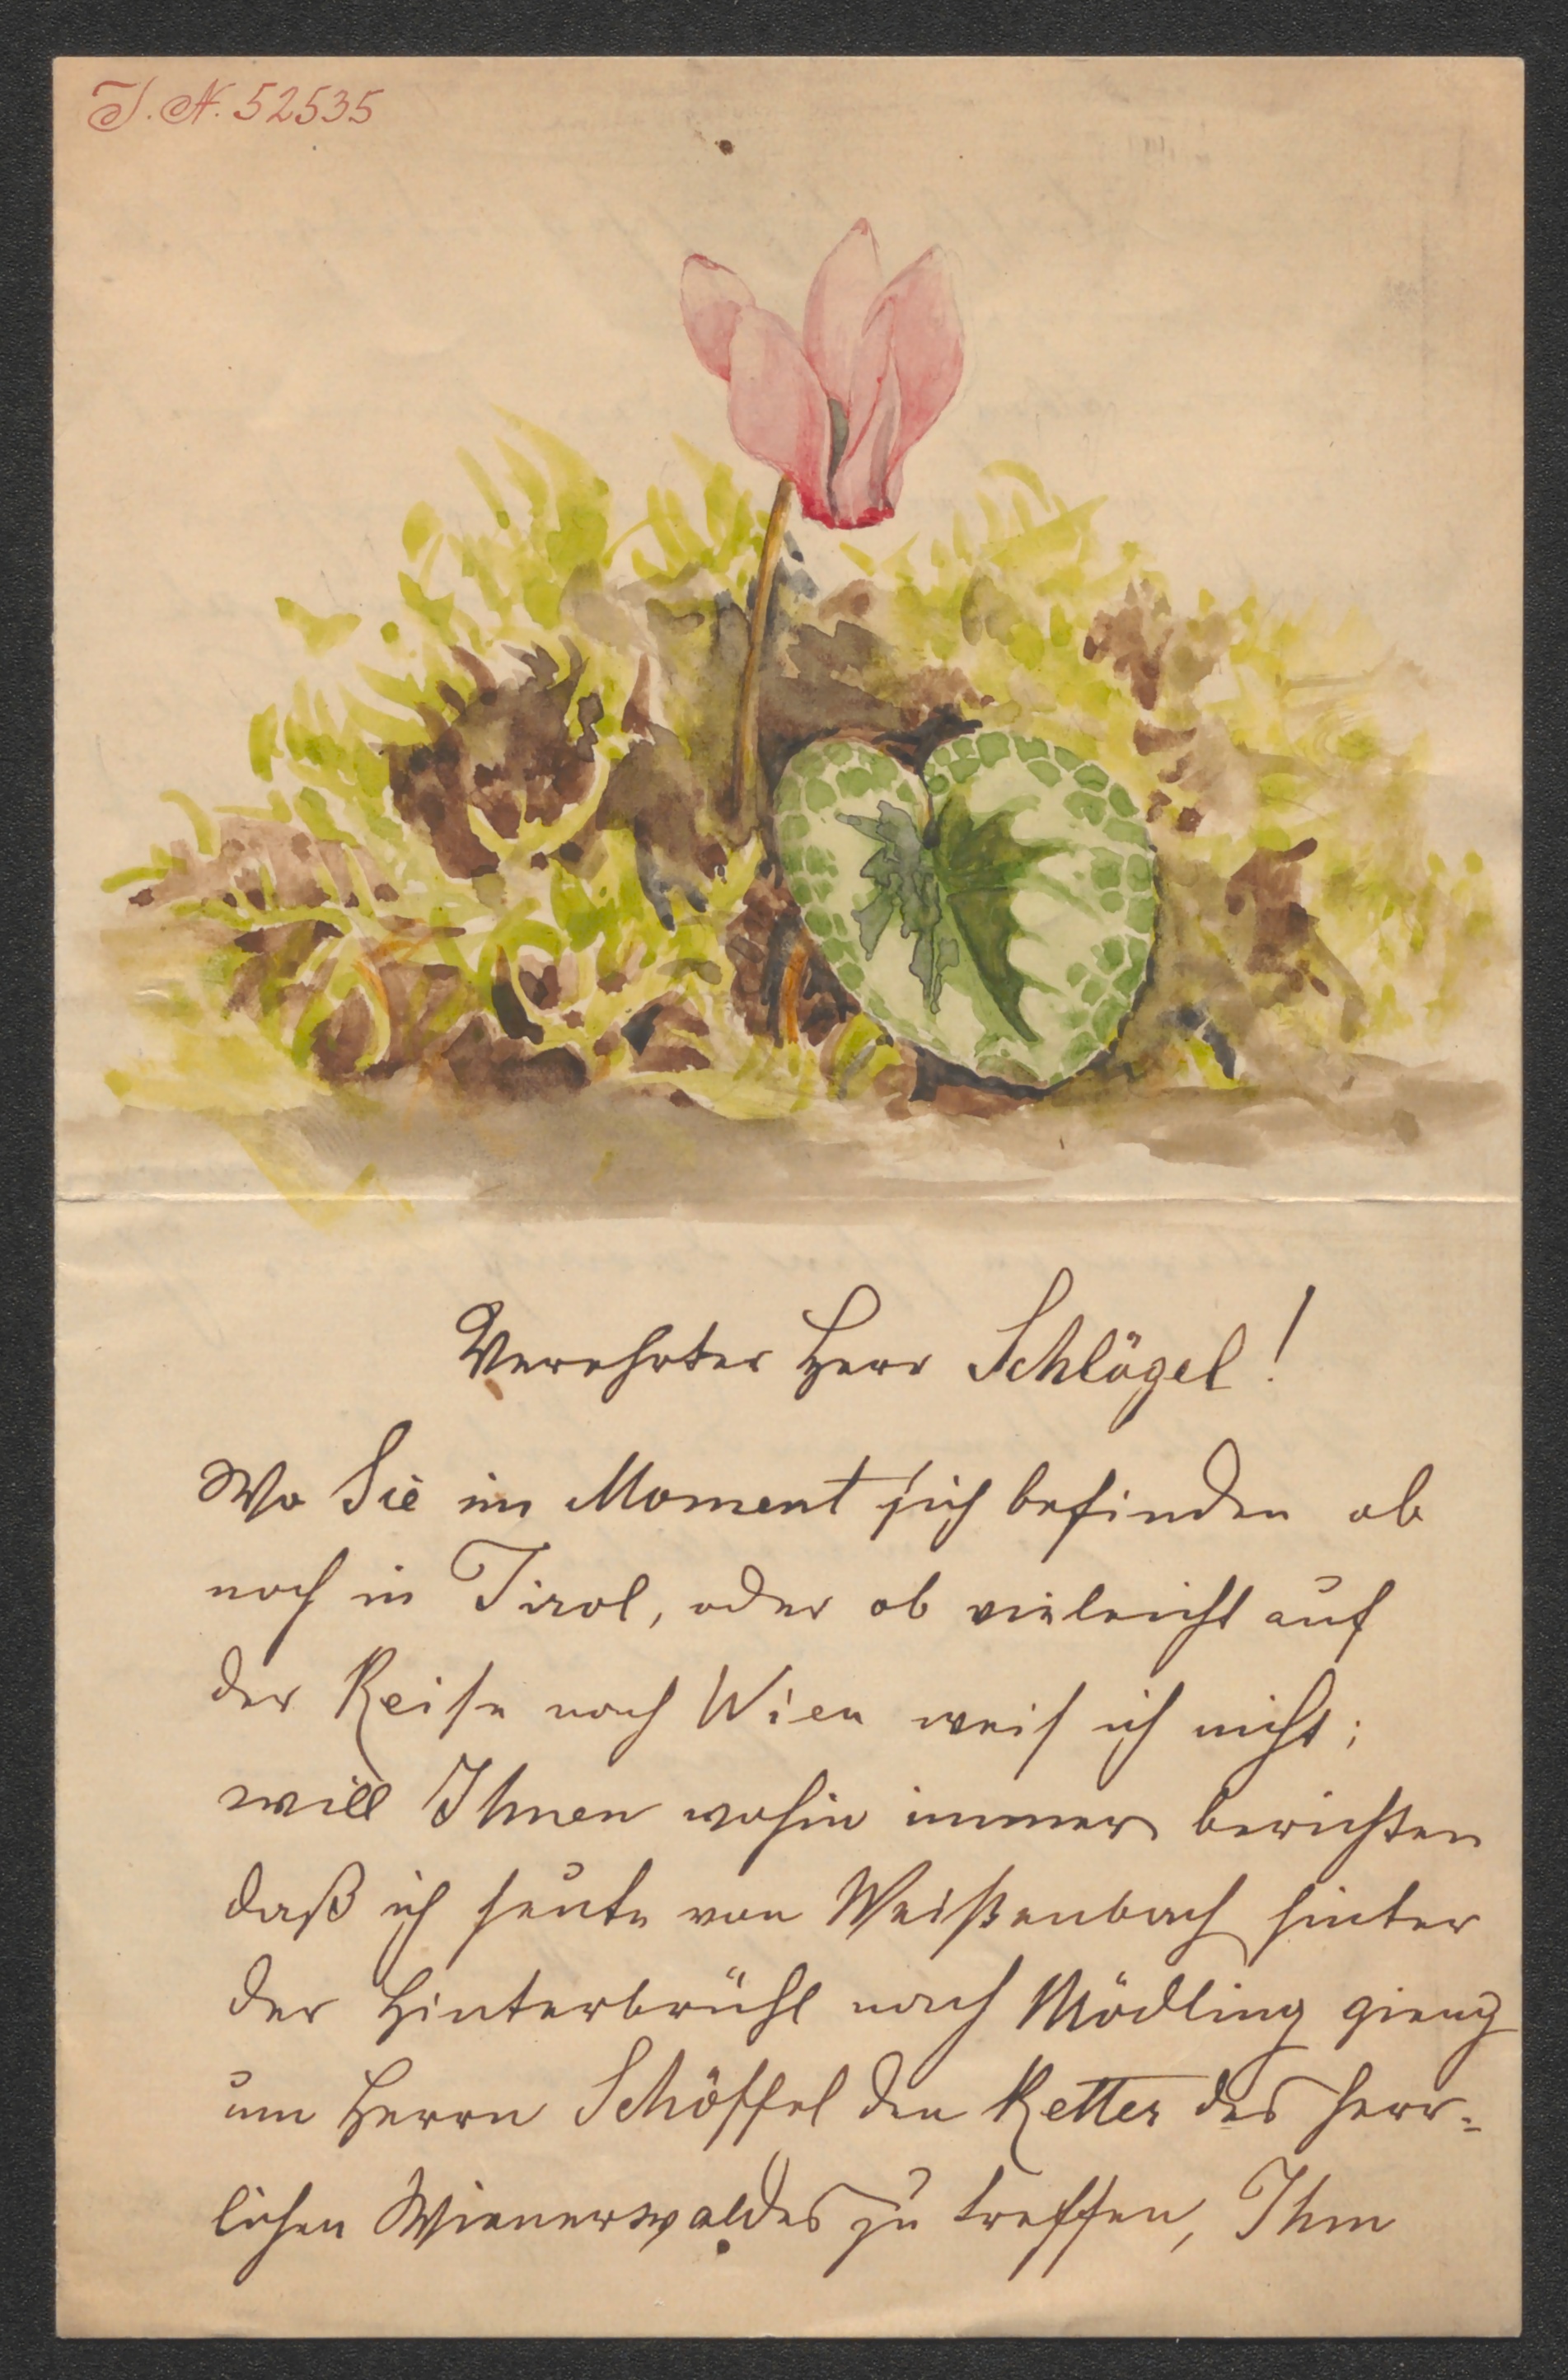 J. N. 52535
Verehrter Herr Schlögel!
Wo Sie im Moment sich befinden ob
noch in Tirol, oder ob vieleicht auf
der Reise nach Wien weis ich nicht;
will Ihnen wohin immer berichten
daß ich heute von Weißenbach hinter
der Hinterbrühl nach Mödling gieng
um Herrn Schöffel den Retter des herr=
lichen Wienerwaldes zu treffen, Ihm